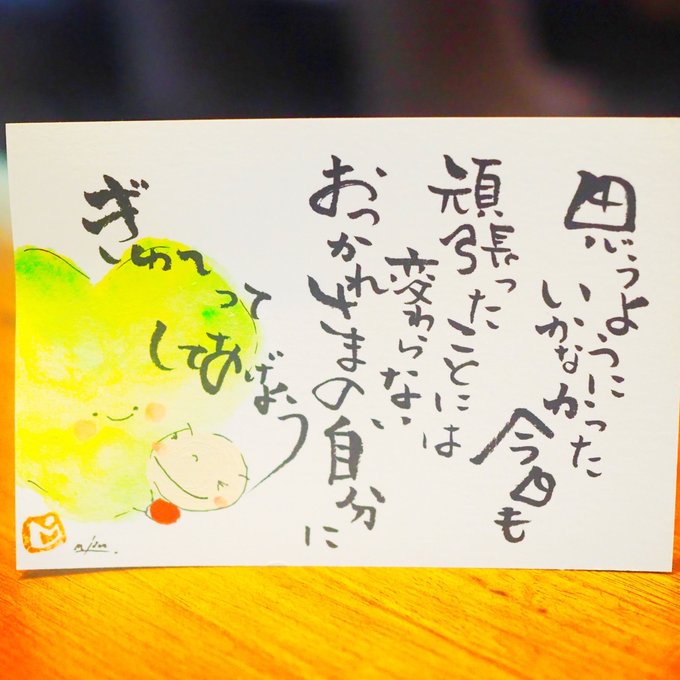 思うように
いかなかった
今日も
頑張ったことには
変わらない
おつかれさまの自分に
ぎゅーって
してあげよう